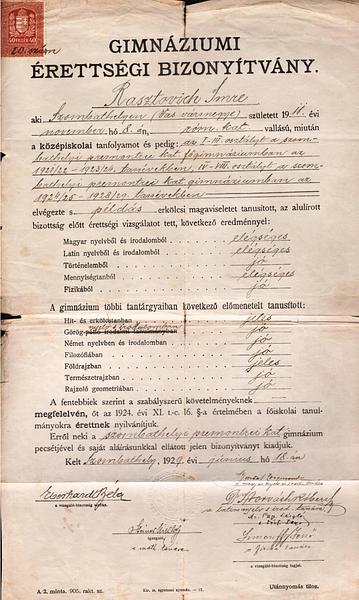 20. szám
GIMNÁZIUMI
ÉRETTSÉGI BIZONYÍTVÁNY.
Rasztovich Imre
aki Szombathelyen (Vas vármegye) született 1911. évi
november hó 8.-én, róm. kat. vallású, miután
a középiskolai tanfolyamot és pedig: az I-III. osztályt a szom-
bathelyi premontrei kat. főgimnáziumban az
1921/22 - 1923/24. tanévekben, IV-VIII. osztályt a szom-
bathelyi premontrei kat. gimnáziumban az
1924/25 - 1928/29. tanévekben
elvégezte s példás erkölcsi magaviseletet tanusított, az alulírott
bizottság előtt érettségi vizsgálatot tett, következő eredménnyel:
Magyar nyelvből és irodalomból elégséges
Latin nyelvből és irodalomból elégséges
Történelemből jó
Mennyiségtanból elégséges
Fizikából jó
A gimnázium többi tantárgyaiban következő előmenetelt tanusított:
Hit- és erkölcstanban jeles
Görög irodalomban jó
Német nyelvben és irodalomban jó
Filozófiában jó
Földrajzban jeles
Természetrajzban jó
Rajzoló geometriában jó
A fentebbiek szerint a szabályszerű követelményeknek
megfelelvén, őt az 1924. évi XI. t.-c. 16. §-a értelmében a főiskolai tanul-
mányokra érettnek nyilvánítjuk.
Erről neki a szombathelyi premontrei kat. gimnázium
pecsétjével és saját aláírásunkkal ellátott jelen bizonyítványt kiadjuk.
Kelt Szombathely, 1929. évi június hó 18.-án
Eberhardt Béla
a vizsgáló-bizottság elnöke.
igazgató,
a vizsgáló-bizottság tagjai.
A/2. minta. 905. rakt. sz.
Kir. m. egyetemi nyomda.
Utánnyomás tilos.